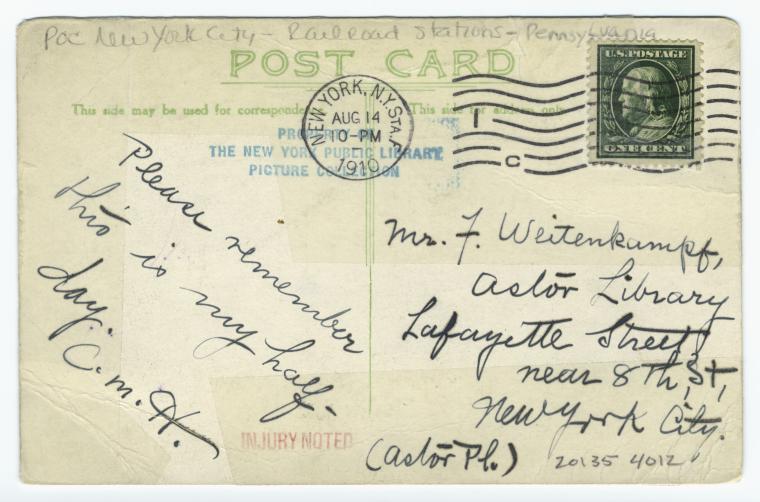 PoC New York City - Railroad Stations - Pennsylvania
POST CARD
This side may be used for corresponde
This side for address only
U.S. POSTAGE
ONE CENT
NEW YORK, N.Y. STA. C
AUG 14
10-PM
1910
1
C
PROPERTY OF
THE NEW YORK PUBLIC LIBRARY
PICTURE COLLECTION
Please remember
this is my half-
day.
C. M. H.
Mr. F. Weitenkampf,
Astor Library
Lafayette Street
near 8th, St,
New York City.
(Astor Pl.)
20135 4012
INJURY NOTED